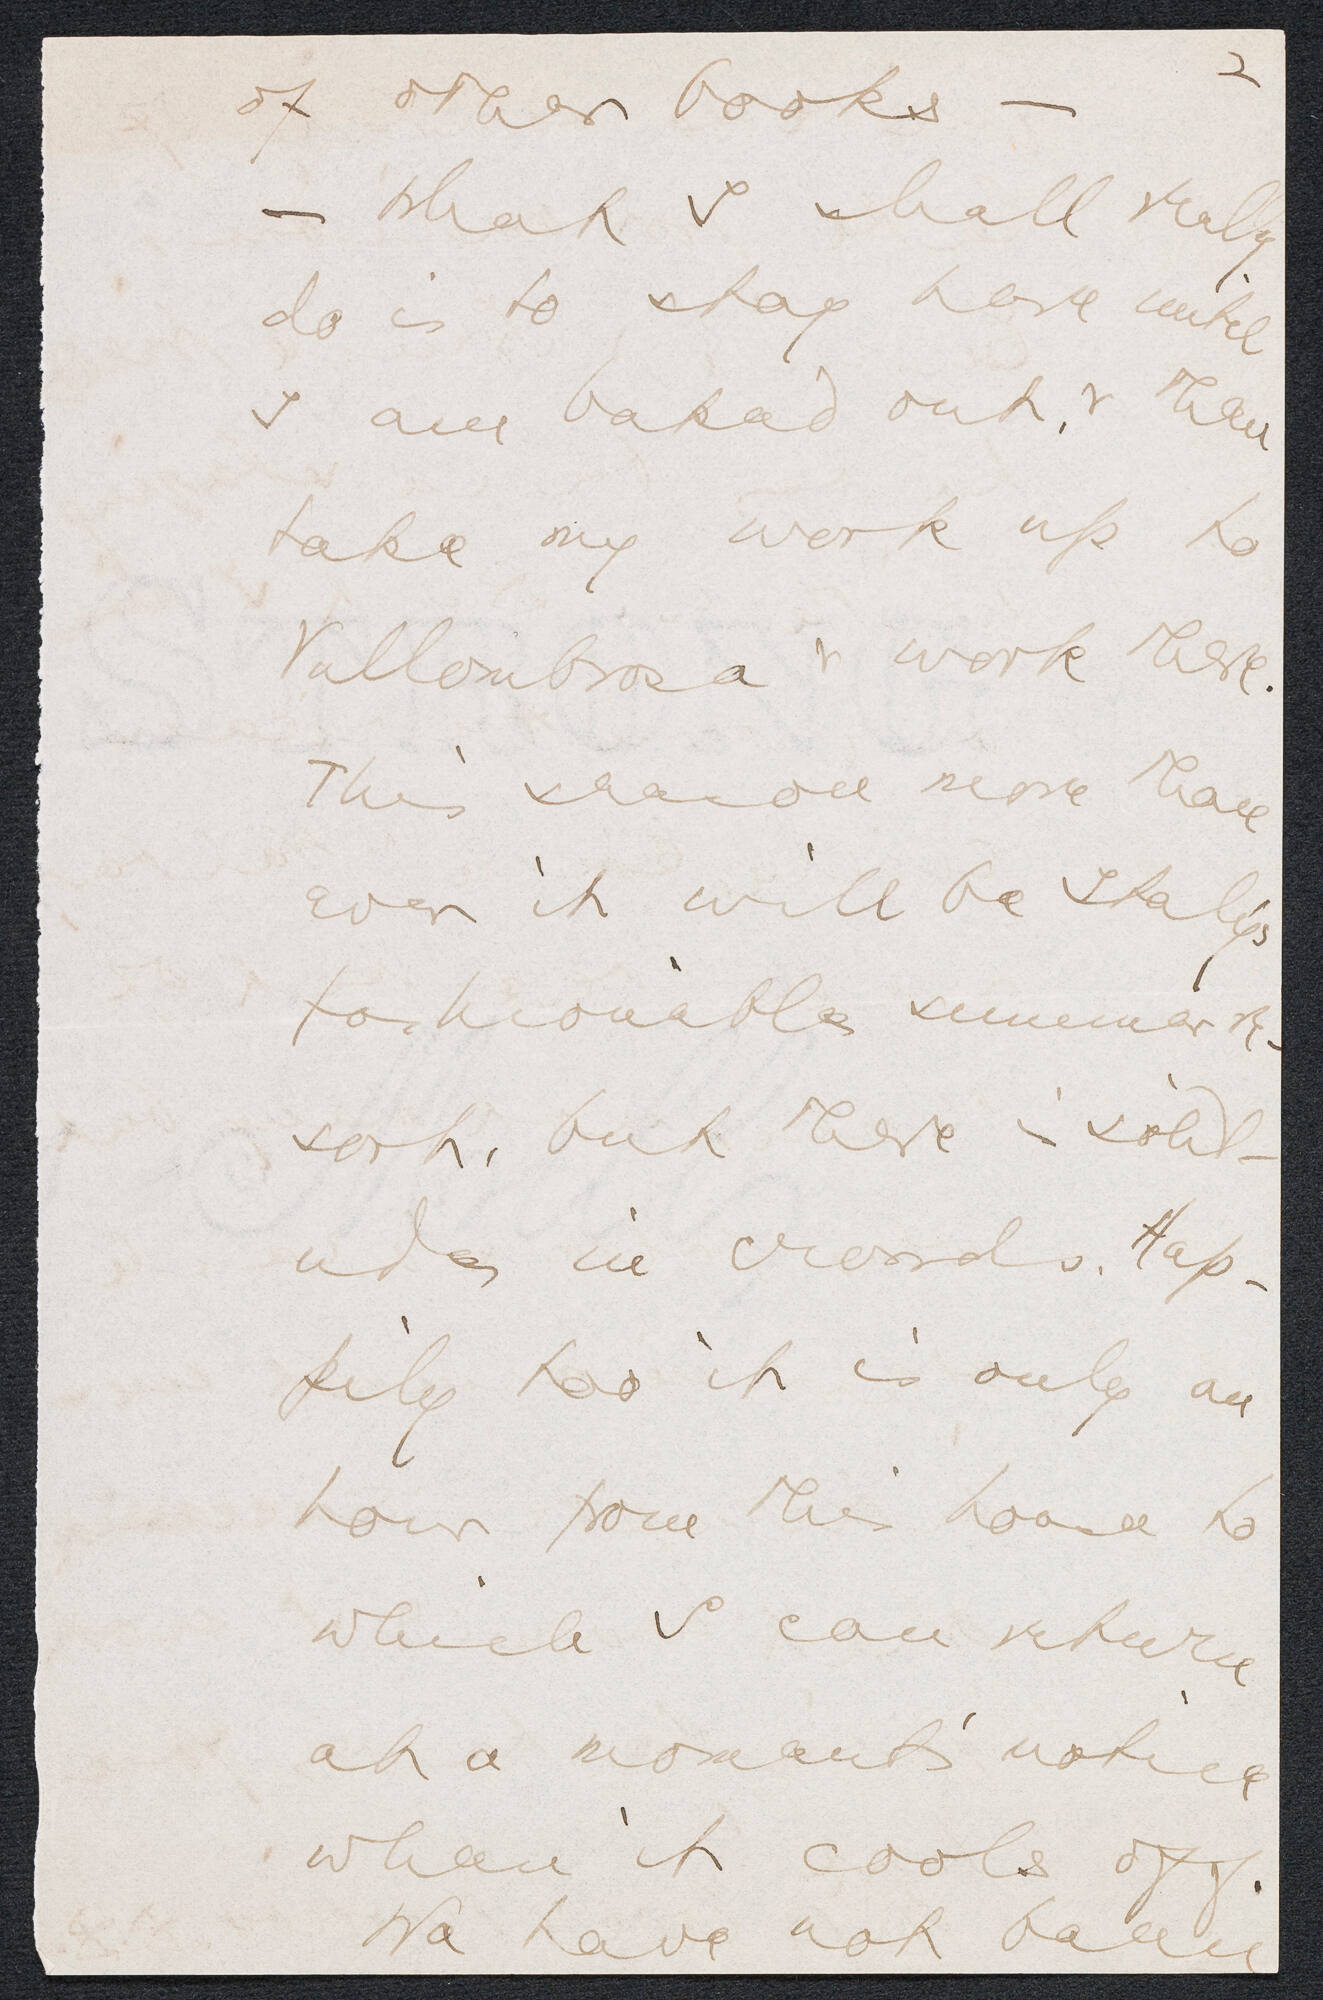 2
of other books —
— What I shall really
do is to stay here until
I am baked out, & then
take my work up to
Vallombrosa & work there.
This season more than
ever it will be Italy's
fashionable summer re-
sort, but there is solit-
ude in crowds. Hap-
pily too it is only an
hour from this house to
which I can return
at a moment's notice
when it cools off.
We have not been